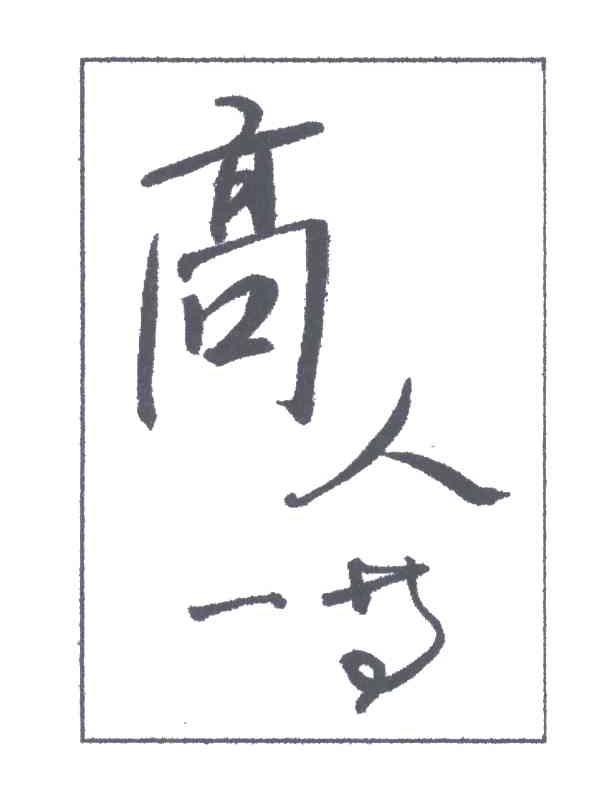 高人
一等